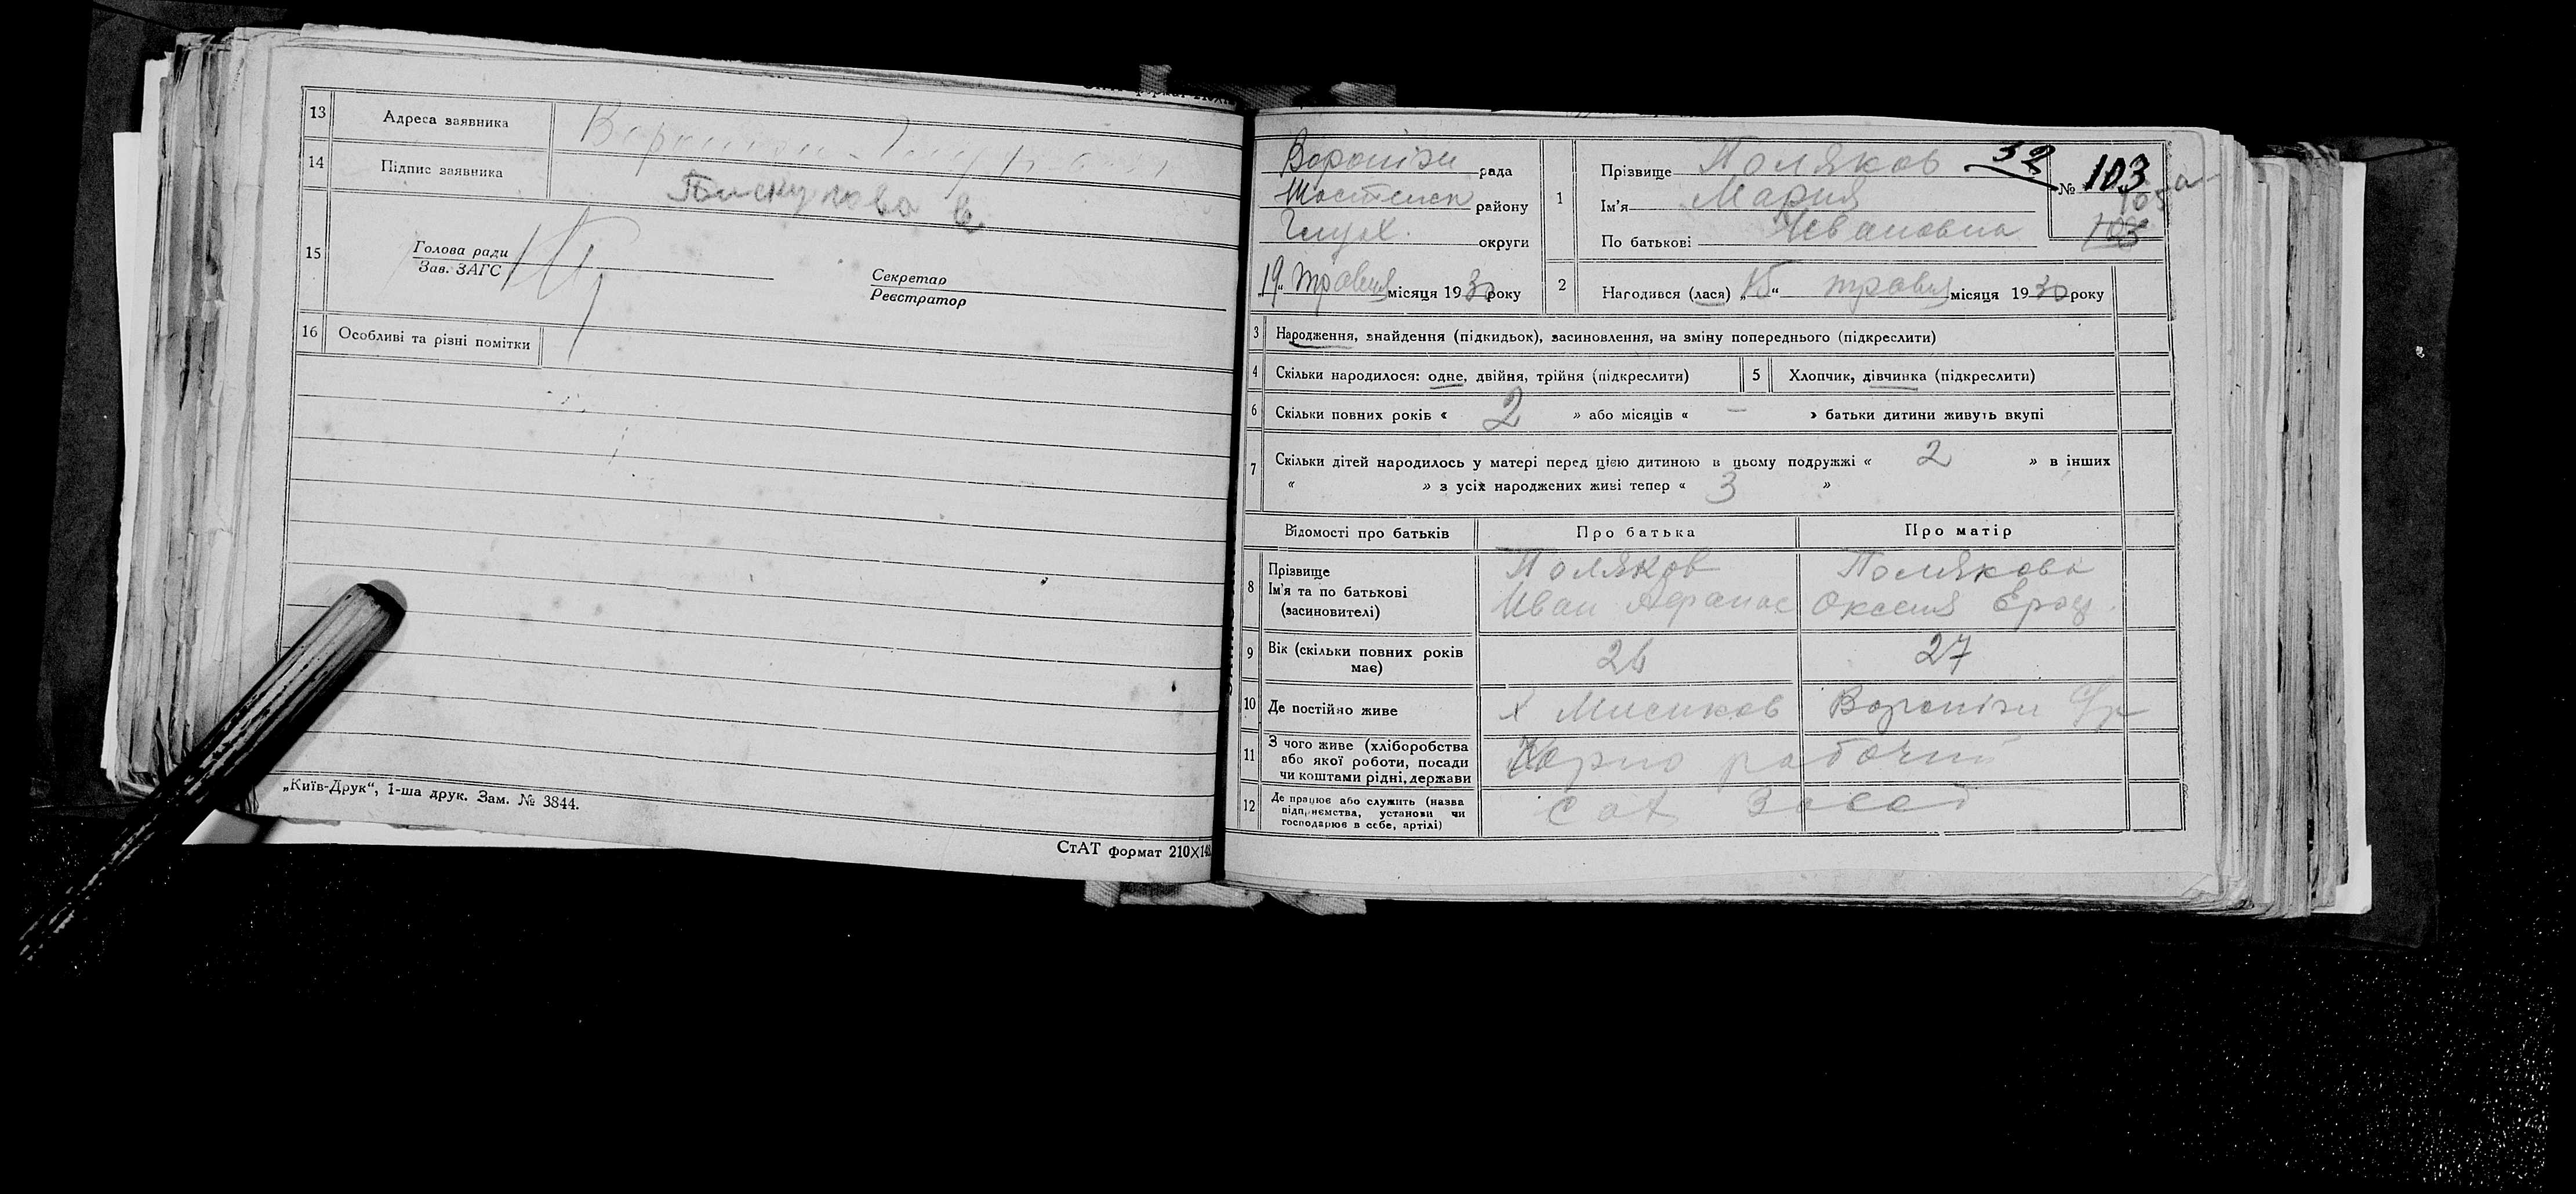 13 Адреса заявника
14 Підпис заявника
15 Голова ради
Зав. ЗАГС
Секретар
Реєстратор
16 Особливі та різні помітки
„Київ-Друк“, 1-ша друк. Зам. № 3844.
СтАТ формат 210×148
Вороніжи рада
Шосткин району
Глух. округи
„19“ травня місяця 1930 року
1 Прізвище Поляков 32
Ім'я Мария
По батькові Ивановна
№ 103
2 Народився (лася) „15“ травня місяця 1930 року
3 Народження, знайдення (підкидьок), засиновлення, на зміну попереднього (підкреслити)
4 Скільки народилося: одне, двійня, трійня (підкреслити)
5 Хлопчик, дівчинка (підкреслити)
6 Скільки повних років « 2 » або місяців « — » батьки дитини живуть вкупі
7 Скільки дітей народилось у матері перед цією дитиною в цьому подружжі « 2 » в інших
« » з усіх народжених живі тепер « 3 »
Відомості про батьків Про батька Про матір
8 Прізвище
Ім'я та по батькові
(засиновителі)
Поляков
Иван Афанас
Полякова
9 Вік (скільки повних років
має)
26 27
10 Де постійно живе
х Мисиков Вороніжи
11 З чого живе (хліборобства
або якої роботи, посади
чи коштами рідні, держави
рабочий
12 Де працює або служить (назва
підприємства, установи чи
господарює в себе, артілі)
Сах Завод